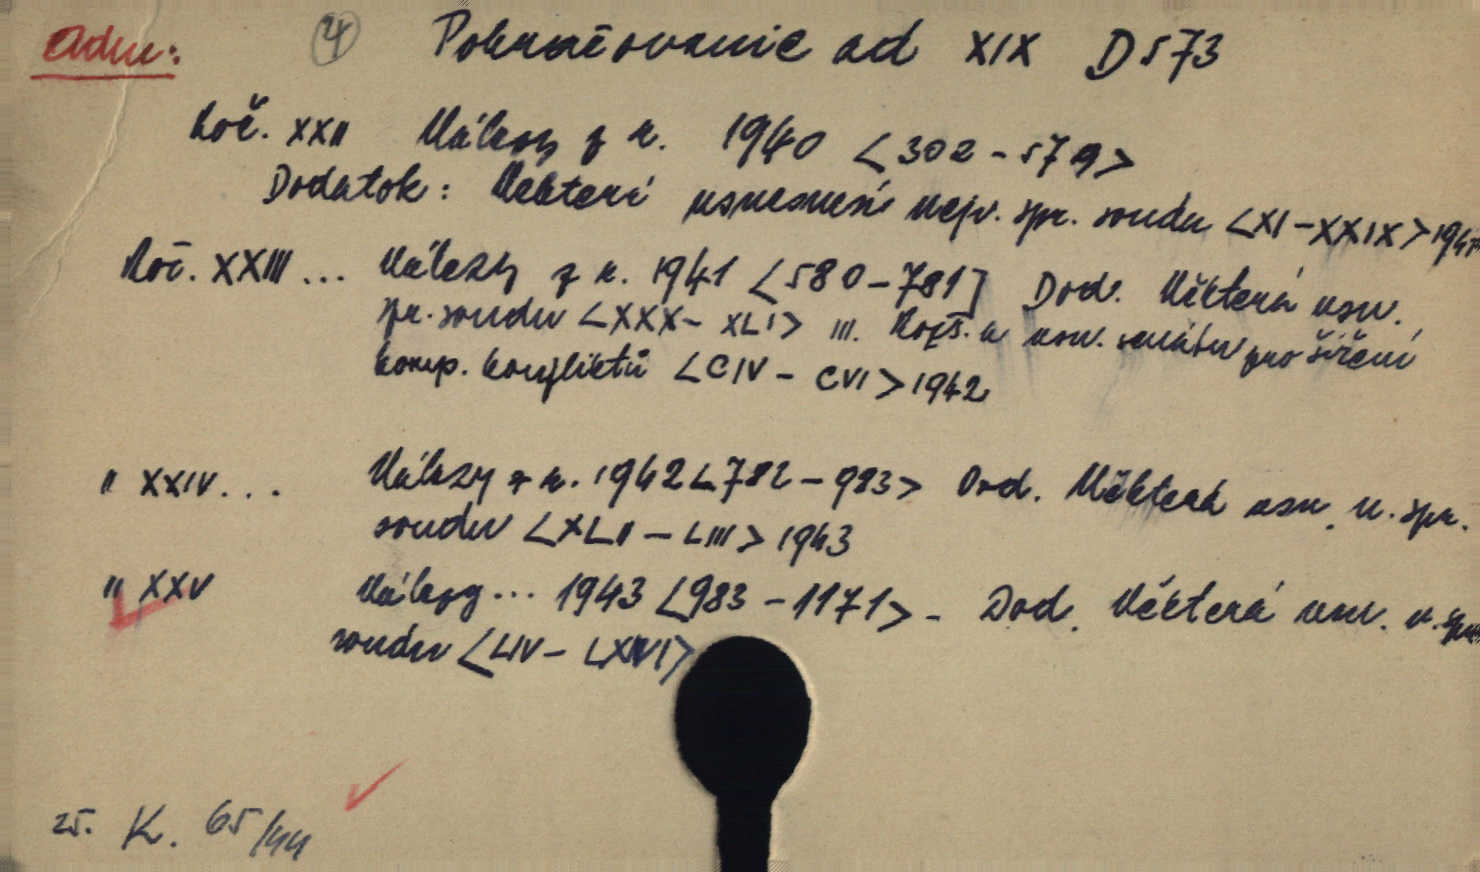 Adm: 4 Pokračovanie ad XIX D 573
Roč. XXII Nálezy z r. 1940 <302-579>
Dodatok: Některá usnesení nejv. spr. soudu <XI-XXIX> 1941
Roč. XXIII ... Nálezy z r. 1941 <580-781] Dod. Některá usn.
spr. soudu <XXX- XLI> III. Rozš. a usn. senátu pro šíření
komp. konfliktů <CIV - CVI> 1942
" XXIV... Nálezy z r. 1942 <782-983> Dod. Některá usn. n. spr.
soudu <XLII - LIII> 1943
" XXV Nálezy ... 1943 <983-1171> - Dod. Některá usn. n. spr.
soudu <LIV-
25. K. 65/44